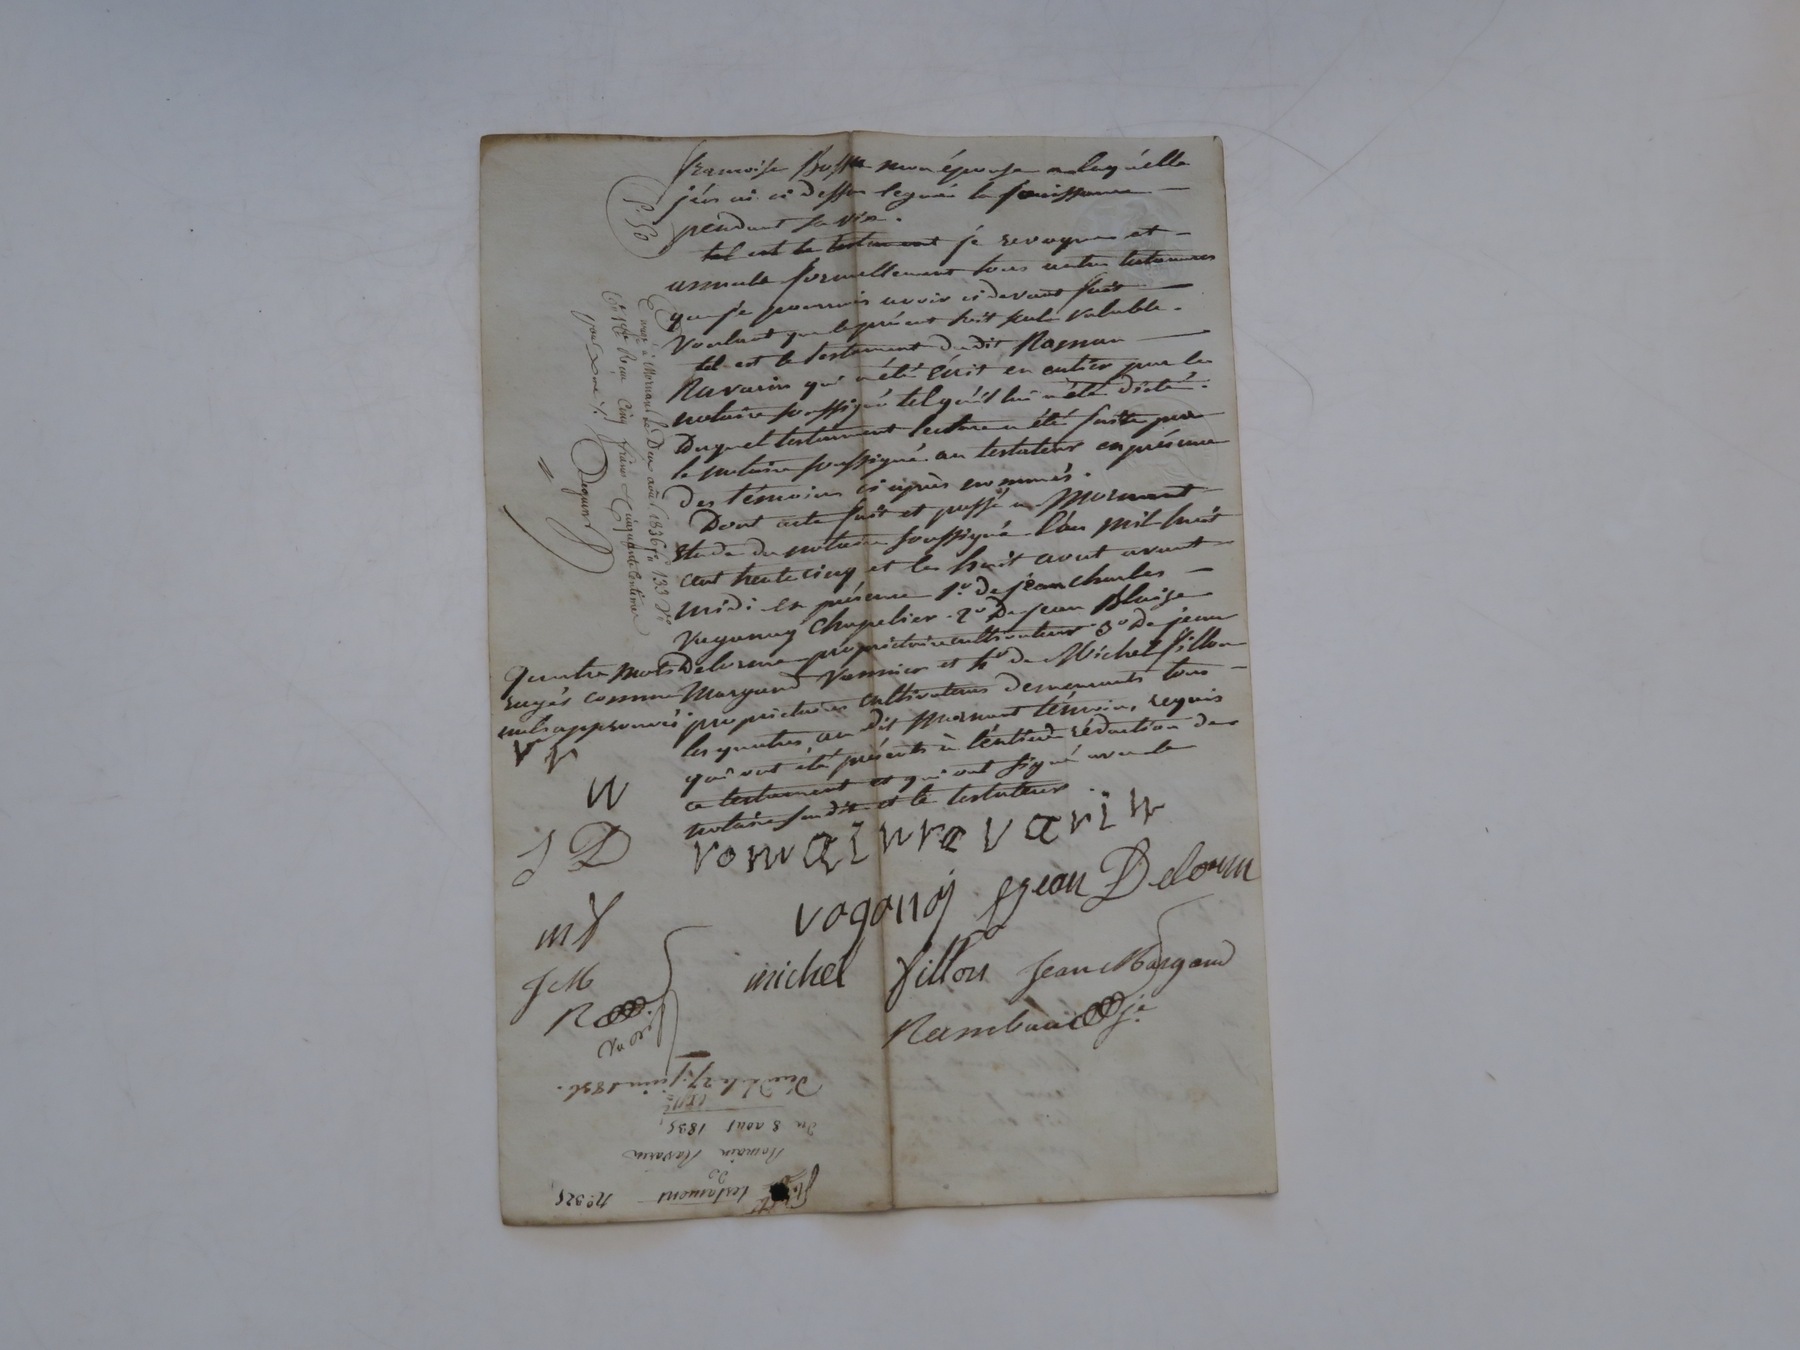 françoise Bosse mon épouse a laquélle
j'en ai ci dessus legué la jouissance
pendant sa vie.
tel est le testament je revoque et
annulle formellement tous autres testamens
que je pourrais avoir ci devant fait
Voulant que le présent soit seul valable.
tel est le testament dudit Roman
Ravarin qui a été écrit en entier par le
notaire soussigné tel qu'il lui a été dicté.
Duquel testament lecture a été faite par
le notaire soussigné au testateur en présence
des témoins ci après nommés.
Dont acte fait et passé a Mornant
étude du notaire soussigné l'an mil huit
cent trente cinq et le huit aout avant
midi en présence 1º de jean charles
Vaganay Chapelier 2º De jean Blaize
Delorme propriétaire cultivateur 3º de jean
Margand Vannier et 4º de Michel fillon
propriétaires cultivateurs demeurants tous
les quatres, au dit Mornant témoins requis
qui ont été présents à l'entière rédaction de
ce testament et qui ont signé avec le
notaire susdit et le testateur
quatre mots
rayés comme
nuls approuvés
romain ravarin
vaganay jean Delorme
michel fillon jean Margand
Rambaud
v r
j D
m f
J M
R
5f.50
Enrgé à Mornant le Deux août 1836 fº 133 Vº
Cs 1 Reçu Cinq francs Cinquante Centimes
pour
Nº 325
testament
de
Romain Ravarin
du 8 aout 1835,
Décédé le 27 juin 1836.